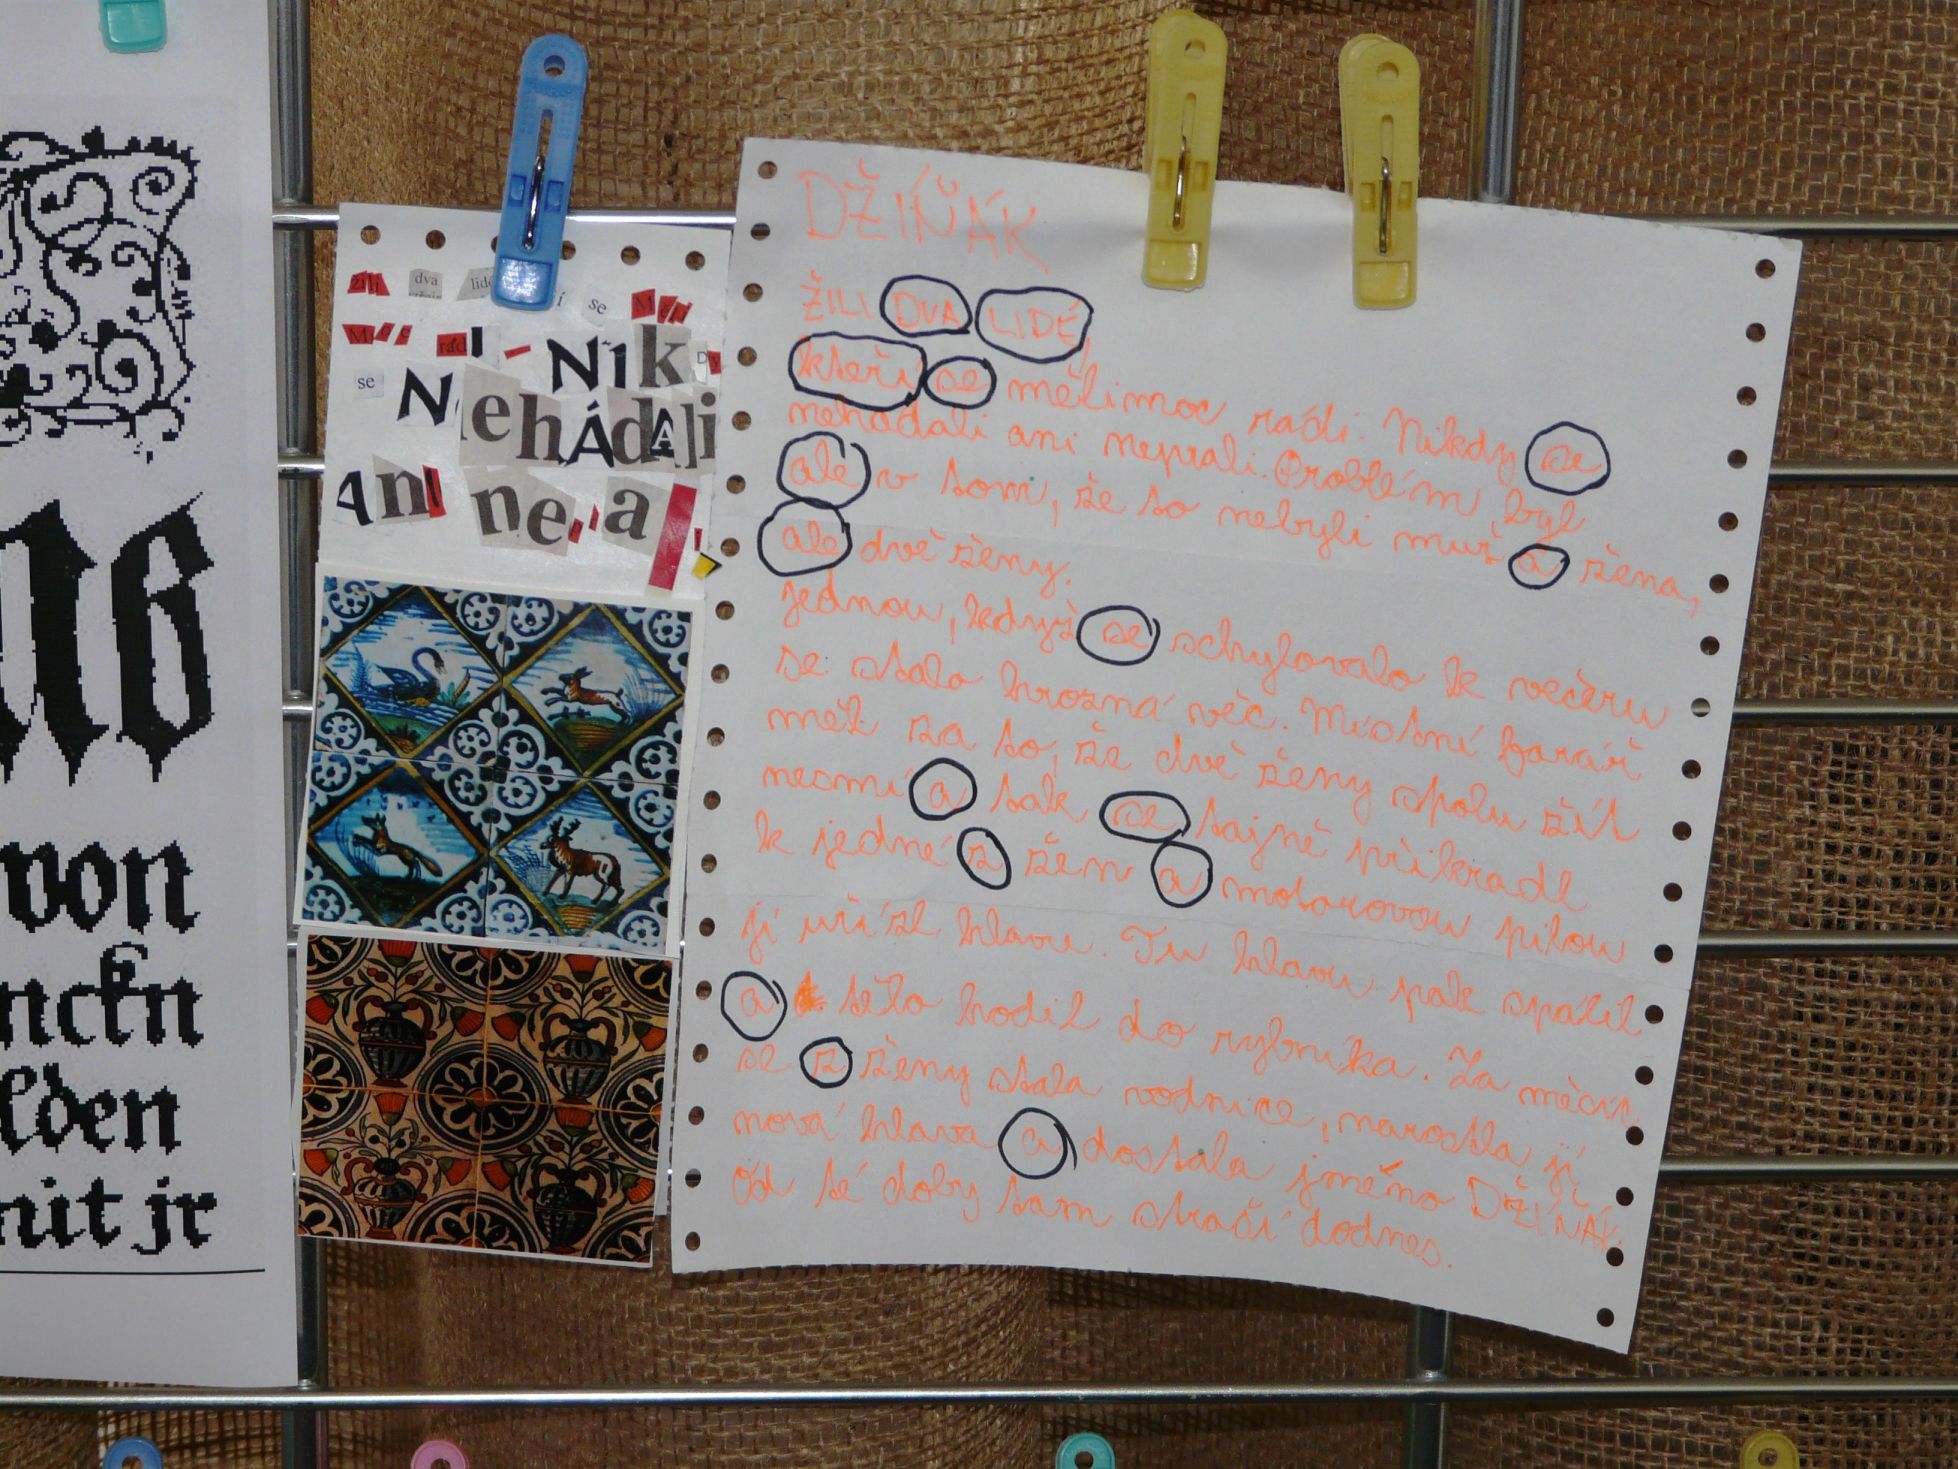 von
lden
mit jr
žili dva lidé
í se Měl
rád
se Nehádali
Nik
Ani ne a
DŽÍŇÁK
ŽILI DVA LIDÉ,
kteří se měli moc rádi. Nikdy se
nehádali ani neprali. Problém byl
ale v tom, že to nebyli muž a žena,
ale dvě ženy.
jednou, když se schylovalo k večeru
se stala hrozná věc. Místní farář
měl za to, že dvě ženy spolu žít
nesmí a tak se tajně přikradl
k jedné z žen a motorovou pilou
jí uřízl hlavu. Tu hlavu pak spálil
a tělo hodil do rybníka. Za měsíc
se z ženy stala vodnice, narostla jí
nová hlava a dostala jméno DŽÍŇÁK.
Od té doby tam straší dodnes.